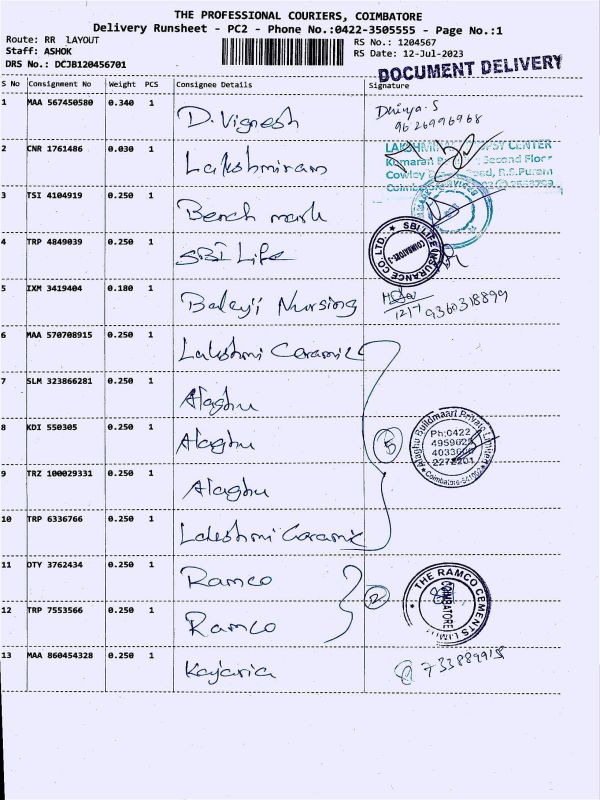 THE PROFESSIONAL COURIERS, COIMBATORE
Delivery Runsheet - PC2 - Phone No.:0422-3505555 - Page No.:1
Route: RR LAYOUT
RS No.: 1204567
Staff: ASHOK
RS Date: 12-Jul-2023
DRS No.: DCJB120456701
DOCUMENT DELIVERY
S No Consignment No Weight PCS Consignee Details Signature
1 MAA 567450580 0.340 1 D. Vignesh
9626996968
2 CNR 1761486 0.030 1 Lakshmiram
CENTER
Kumaran Second Floor
Cowley Road, R.S.Puram
3 TSI 4104919 0.250 1 Bench mark
4 TRP 4849039 0.250 1 SBI Life
SBI LIFE INSURANCE CO LTD.
COIMBATORE-2
5 IXM 3419404 0.180 1 Balaji Nursing
12/7 9360318899
6 MAA 570708915 0.250 1 Lakshmi Ceramic
7 SLM 323866281 0.250 1 Alaghu
8 KDI 550305 0.250 1 Alaghu
5
Alaghu Buildmaart Private Limited
Ph:0422
4959625
Coimbatore-641002
9 TRZ 100029331 0.250 1 Alaghu
10 TRP 6336766 0.250 1 Lakshmi Ceramic
11 DTY 3762434 0.250 1 Ramco
2
THE RAMCO CEMENTS LIMITED
COIMBATORE
12 TRP 7553566 0.250 1 Ramco
13 MAA 860454328 0.250 1 Kajaria